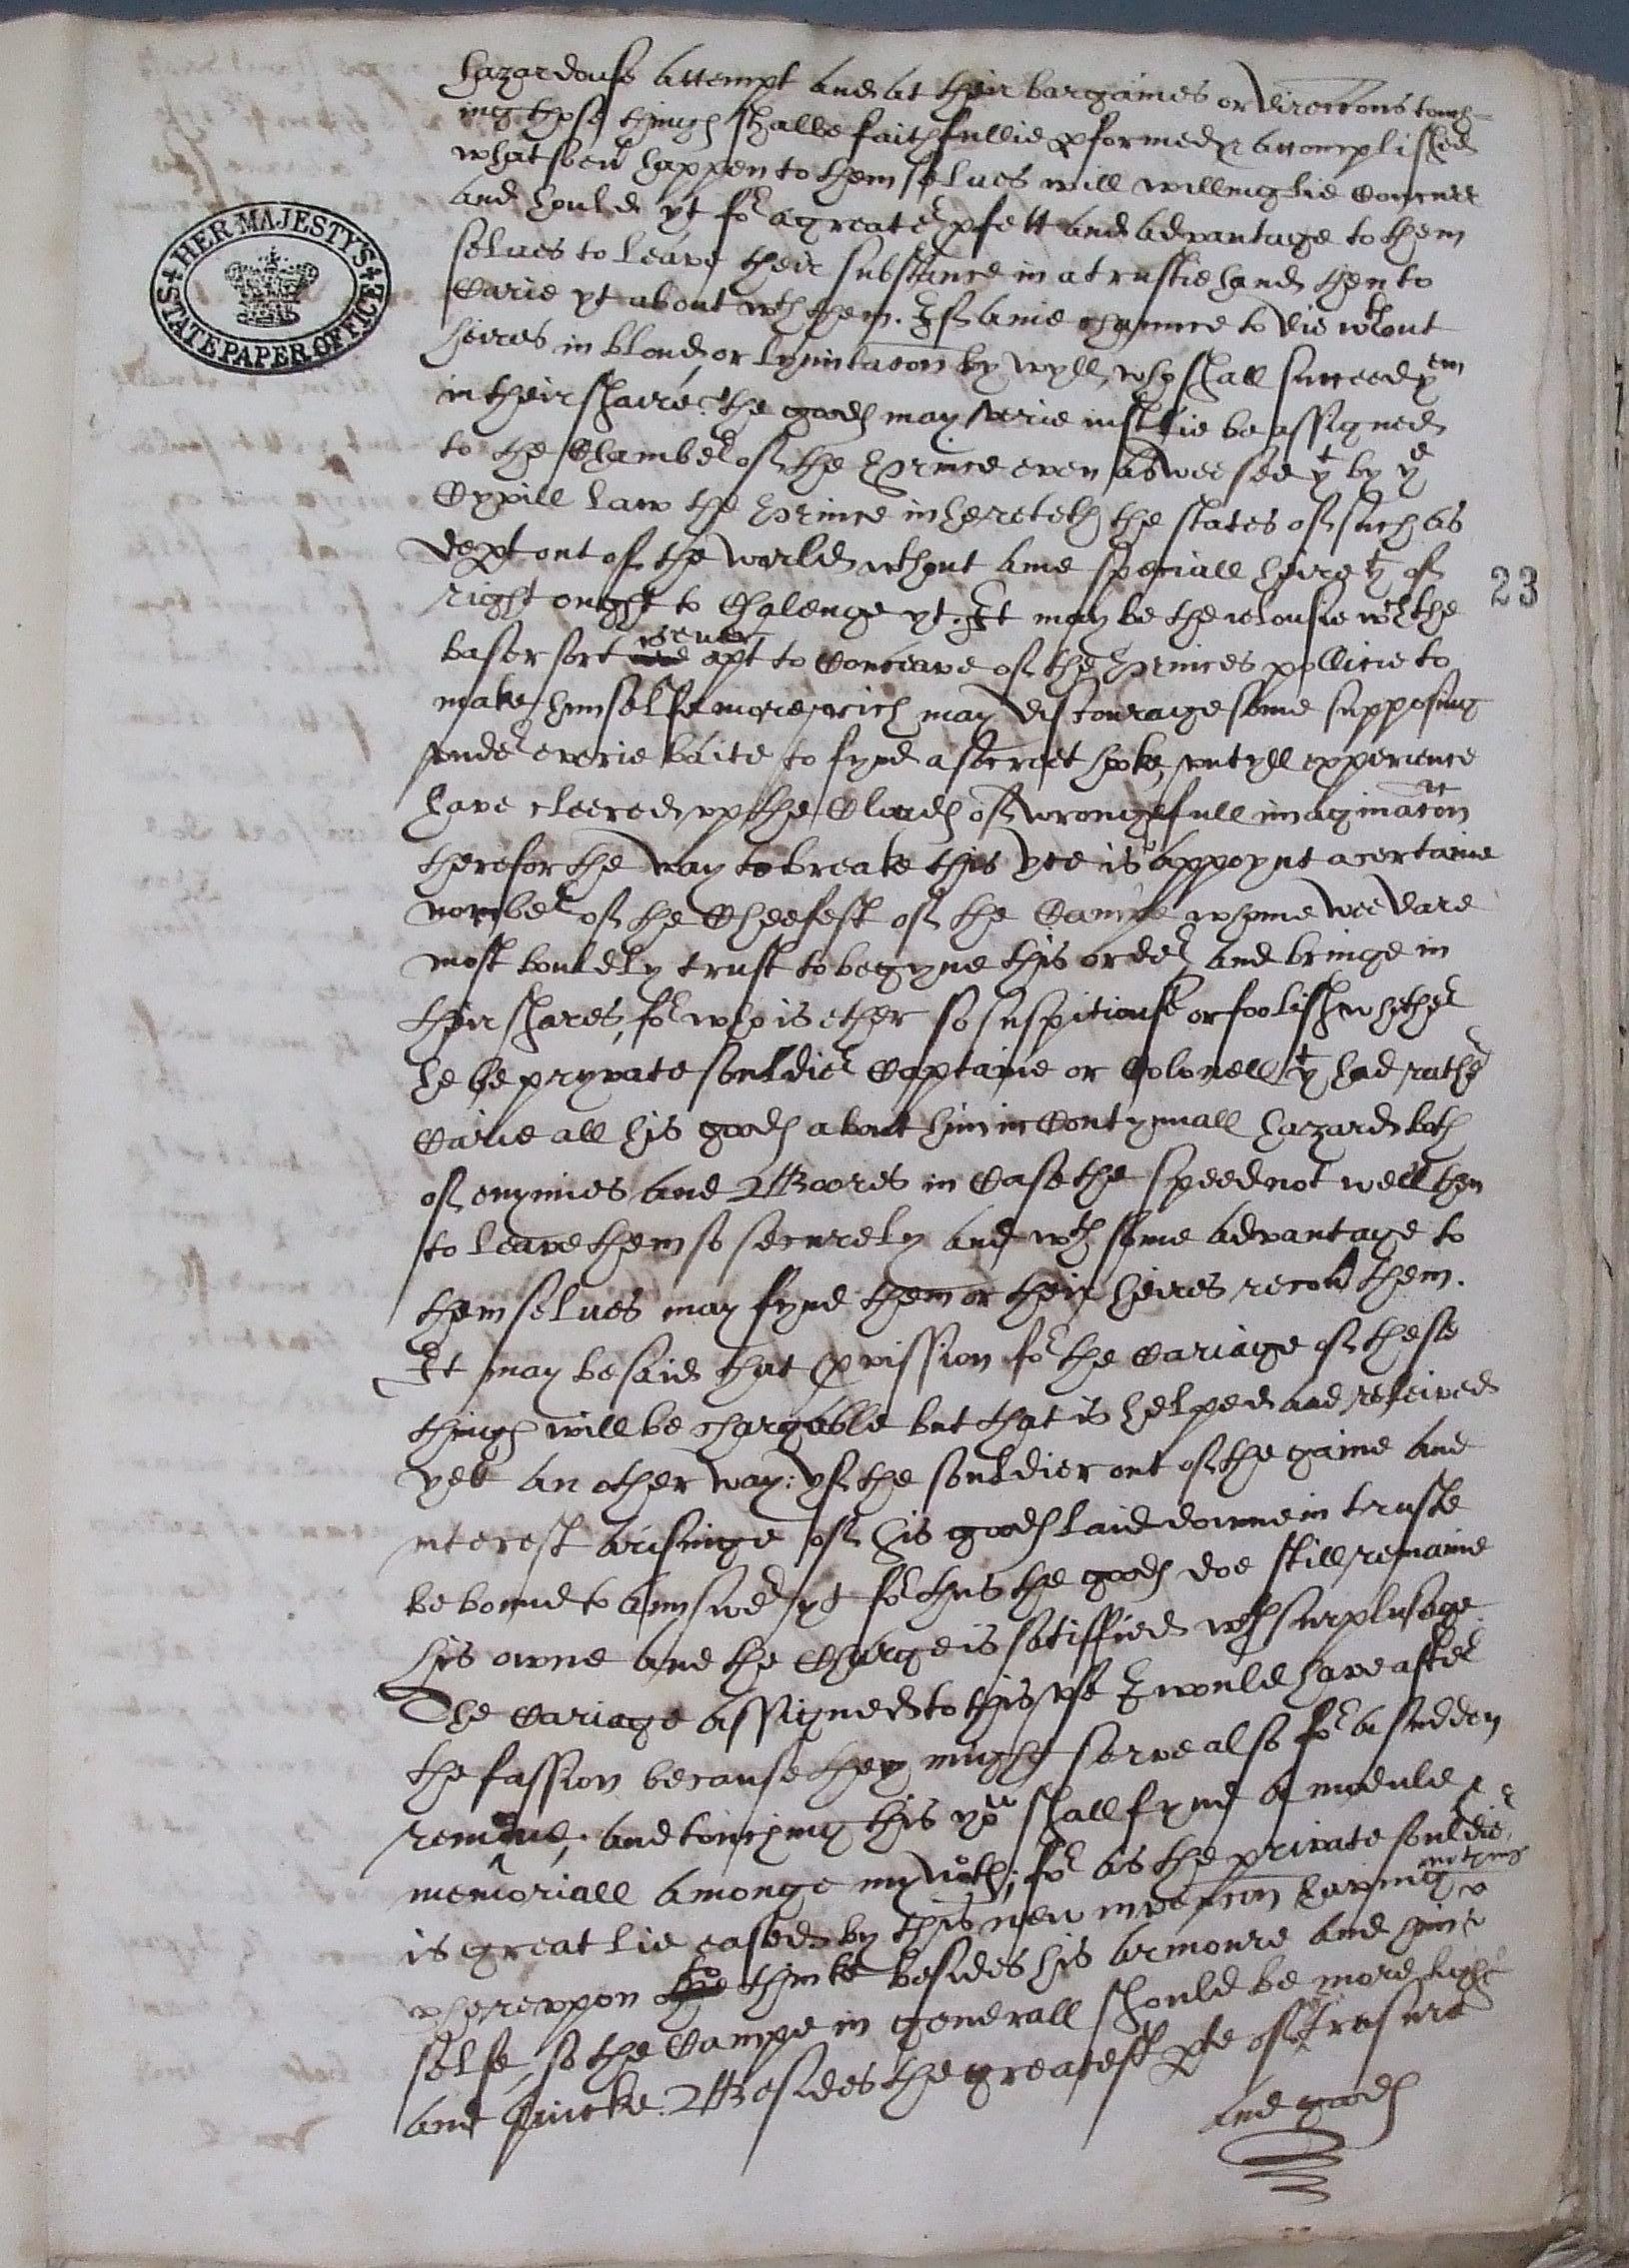 hazardouse attempt and at their bargaines or direcc̃ons touch=
ing those things shalbe faithfullie pformed & accomplished
whatsoeu happen to them selues will willinglie Comitt
and hould yt for a greater pfett and advantage to them
selues to leave their substance in a trustie hand then to
Carie yt about wth them. If anie chaunce to die wthout
heires in bloud or lymitacon by wyll, who shall succeed yem
in their shaire, the goods may verie iustlie be assigned
to the Chamber of the Prince even as wee see yt by ye
Cyvill law the Prince inhereteth the states of such as
dept out of the world wthout anie speciall heire yt of
right ought to Chalenge yt. It may be the ielousie wch the
baser sort is ever apt to Conceave of the Princes pollicie to
make himselfe more rich may discourage some supposing
vnder everie baite to fynd a secreet hooke, vntyll experience
have cleered vp the Clouds of wrongfull imaginac̃on
therefor the way to breake this yce is to appoynt a certaine
nomber of the Cheefest of the Campe whome wee dare
most bouldly trust to begyne this order and bringe in
their shares, for who is ether so suspitiouse or foolish whether
he be pryvate souldier Captaine or Colonell yt had rather
Carie all his goods about him in Contynuall hazard both
of enymies and Boores in Case the speed not well then
to leave them so securely and wth some advantage to
themselues may fynd them or their heires recou them.
It may be said that pvission for the Cariage of these
things will be chargable but that is helped and releived
yet an other way: yf the souldier out of the gaine and
nterest arisinge of his goods laid downe in truste
be bound to answer yt for thus the goods doe still remaine
his owne and the Charge is satisffied wth surplusage
The Cariage assigned to this vse I would have after
the fassion because they might serve also for a sudden
remoue, and touching this you shall fynd a module &
memoriall amonge my; for as the private souldier
is greatlie eased by this new invenc̃on having nothing
wherevppon to thinke besides his armoure and him
selfe, so the Campe in generall should be more light
and quicke. Besides the greatest pte of ye tresure
and goods
23
HER MAJESTY'S
STATE PAPER OFFICE